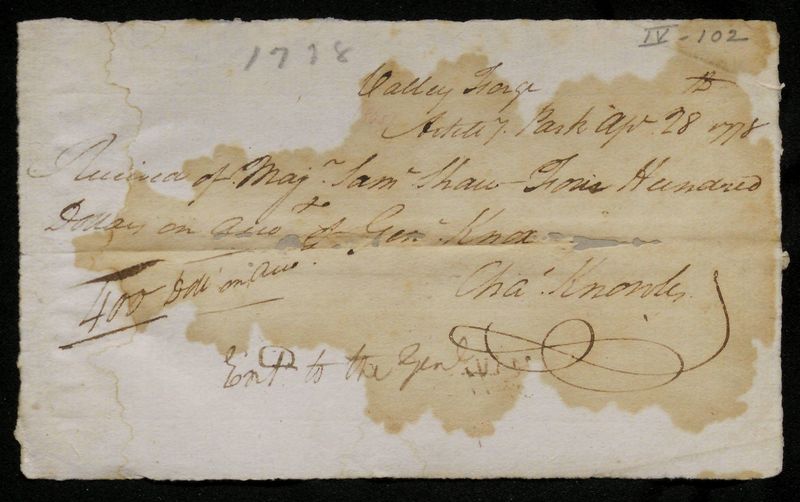 1778
IV-102
Valley Forge
Artill.y Park Apr. 28th 1778
Received of Maj.r Sam.l Shaw Four Hundred
Dollars on Acco.t of Gen.l Knox
400 Doll.s on Acco.t
Cha.s Knowles
Ent.d to the Gen.l